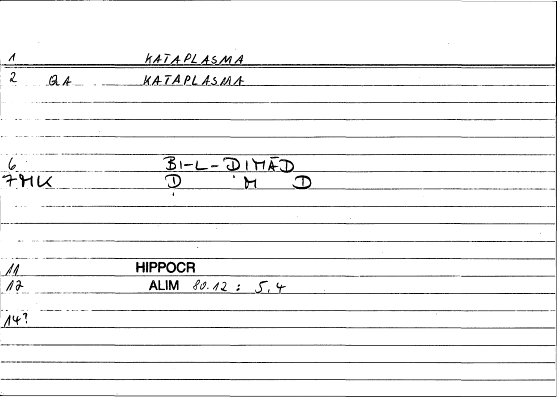 1 KATAPLASMA
2 QA KATAPLASMA
6 BI-L-ḌIMĀD
7MK Ḍ Ṃ D
11 HIPPOCR
12 ALIM 80.12 : 5,4
14?